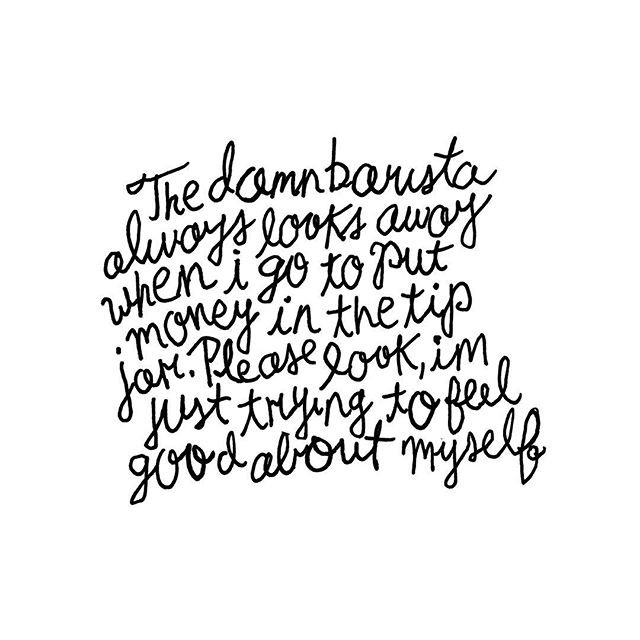 The damn barista
always looks away
when i go to put
money in the tip
jar. Please look, im
just trying to feel
good about myself